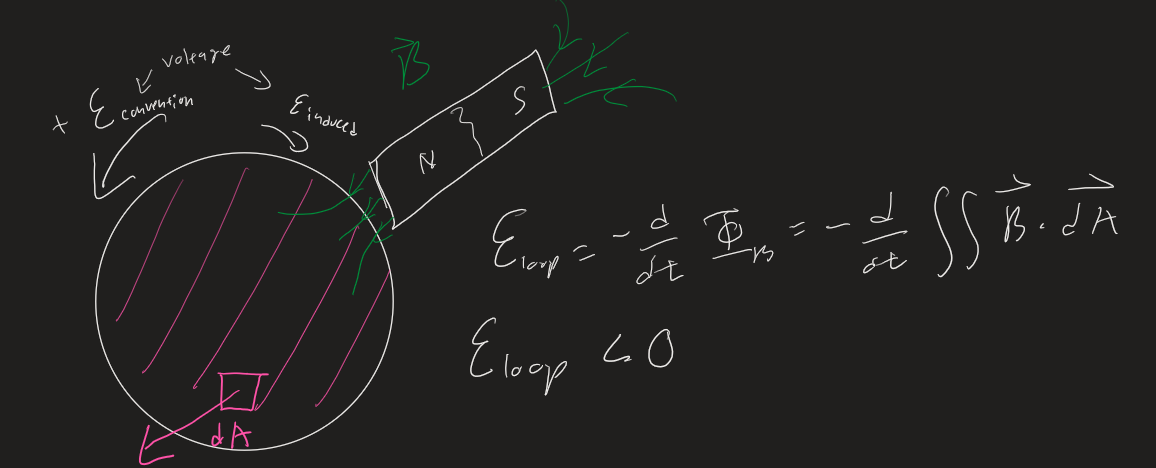 voltage
+ Ɛ convention
Ɛ induced
B⃗
N
S
Ɛ loop = - d/dt Φ_B = - d/dt ∬ B⃗ · dA⃗
Ɛ loop < 0
dA